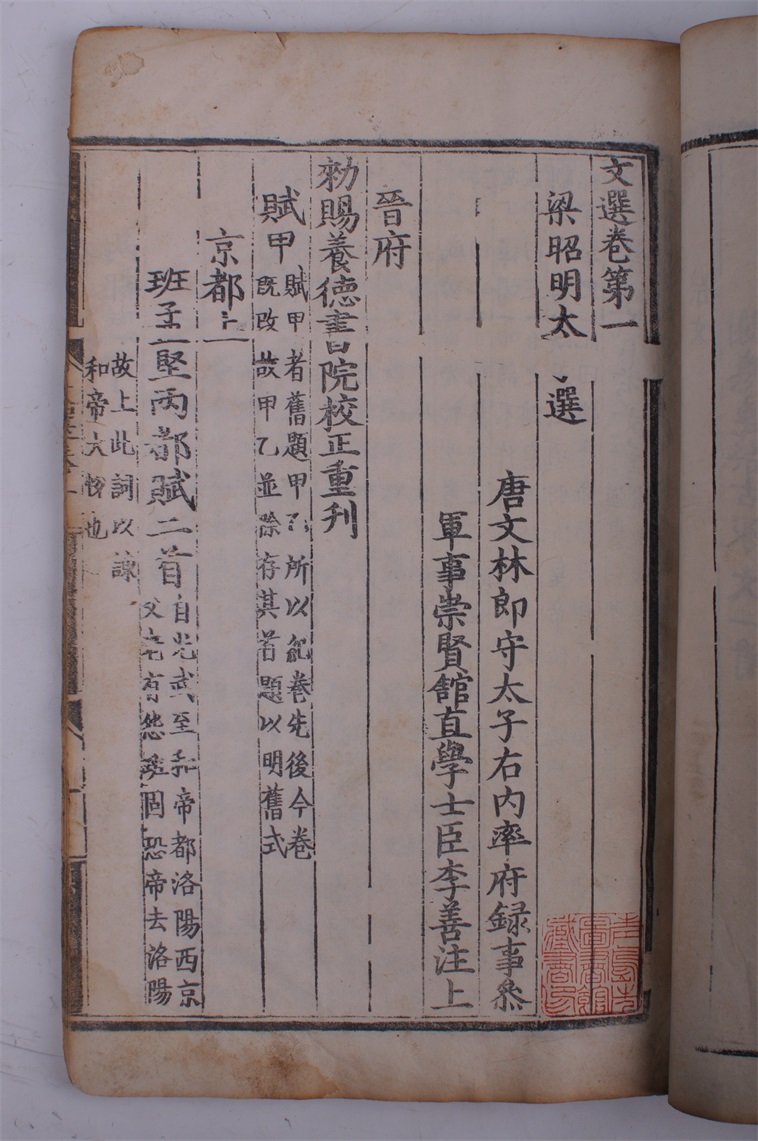 文選卷第一
梁昭明太 選
唐文林郎守太子右内率府録事叅
軍事崇賢館直學士臣李善注上
晉府
勑賜養德書院校正重刋
賦甲
賦甲者舊題甲乙所以紀卷先後今卷
既改故甲乙並除存其首題以明舊式
京都上
班孟堅兩都賦二首
自光武至和帝都洛陽西京
父老有怨班固恐帝去洛陽
故上此詞以諫
和帝大悅也